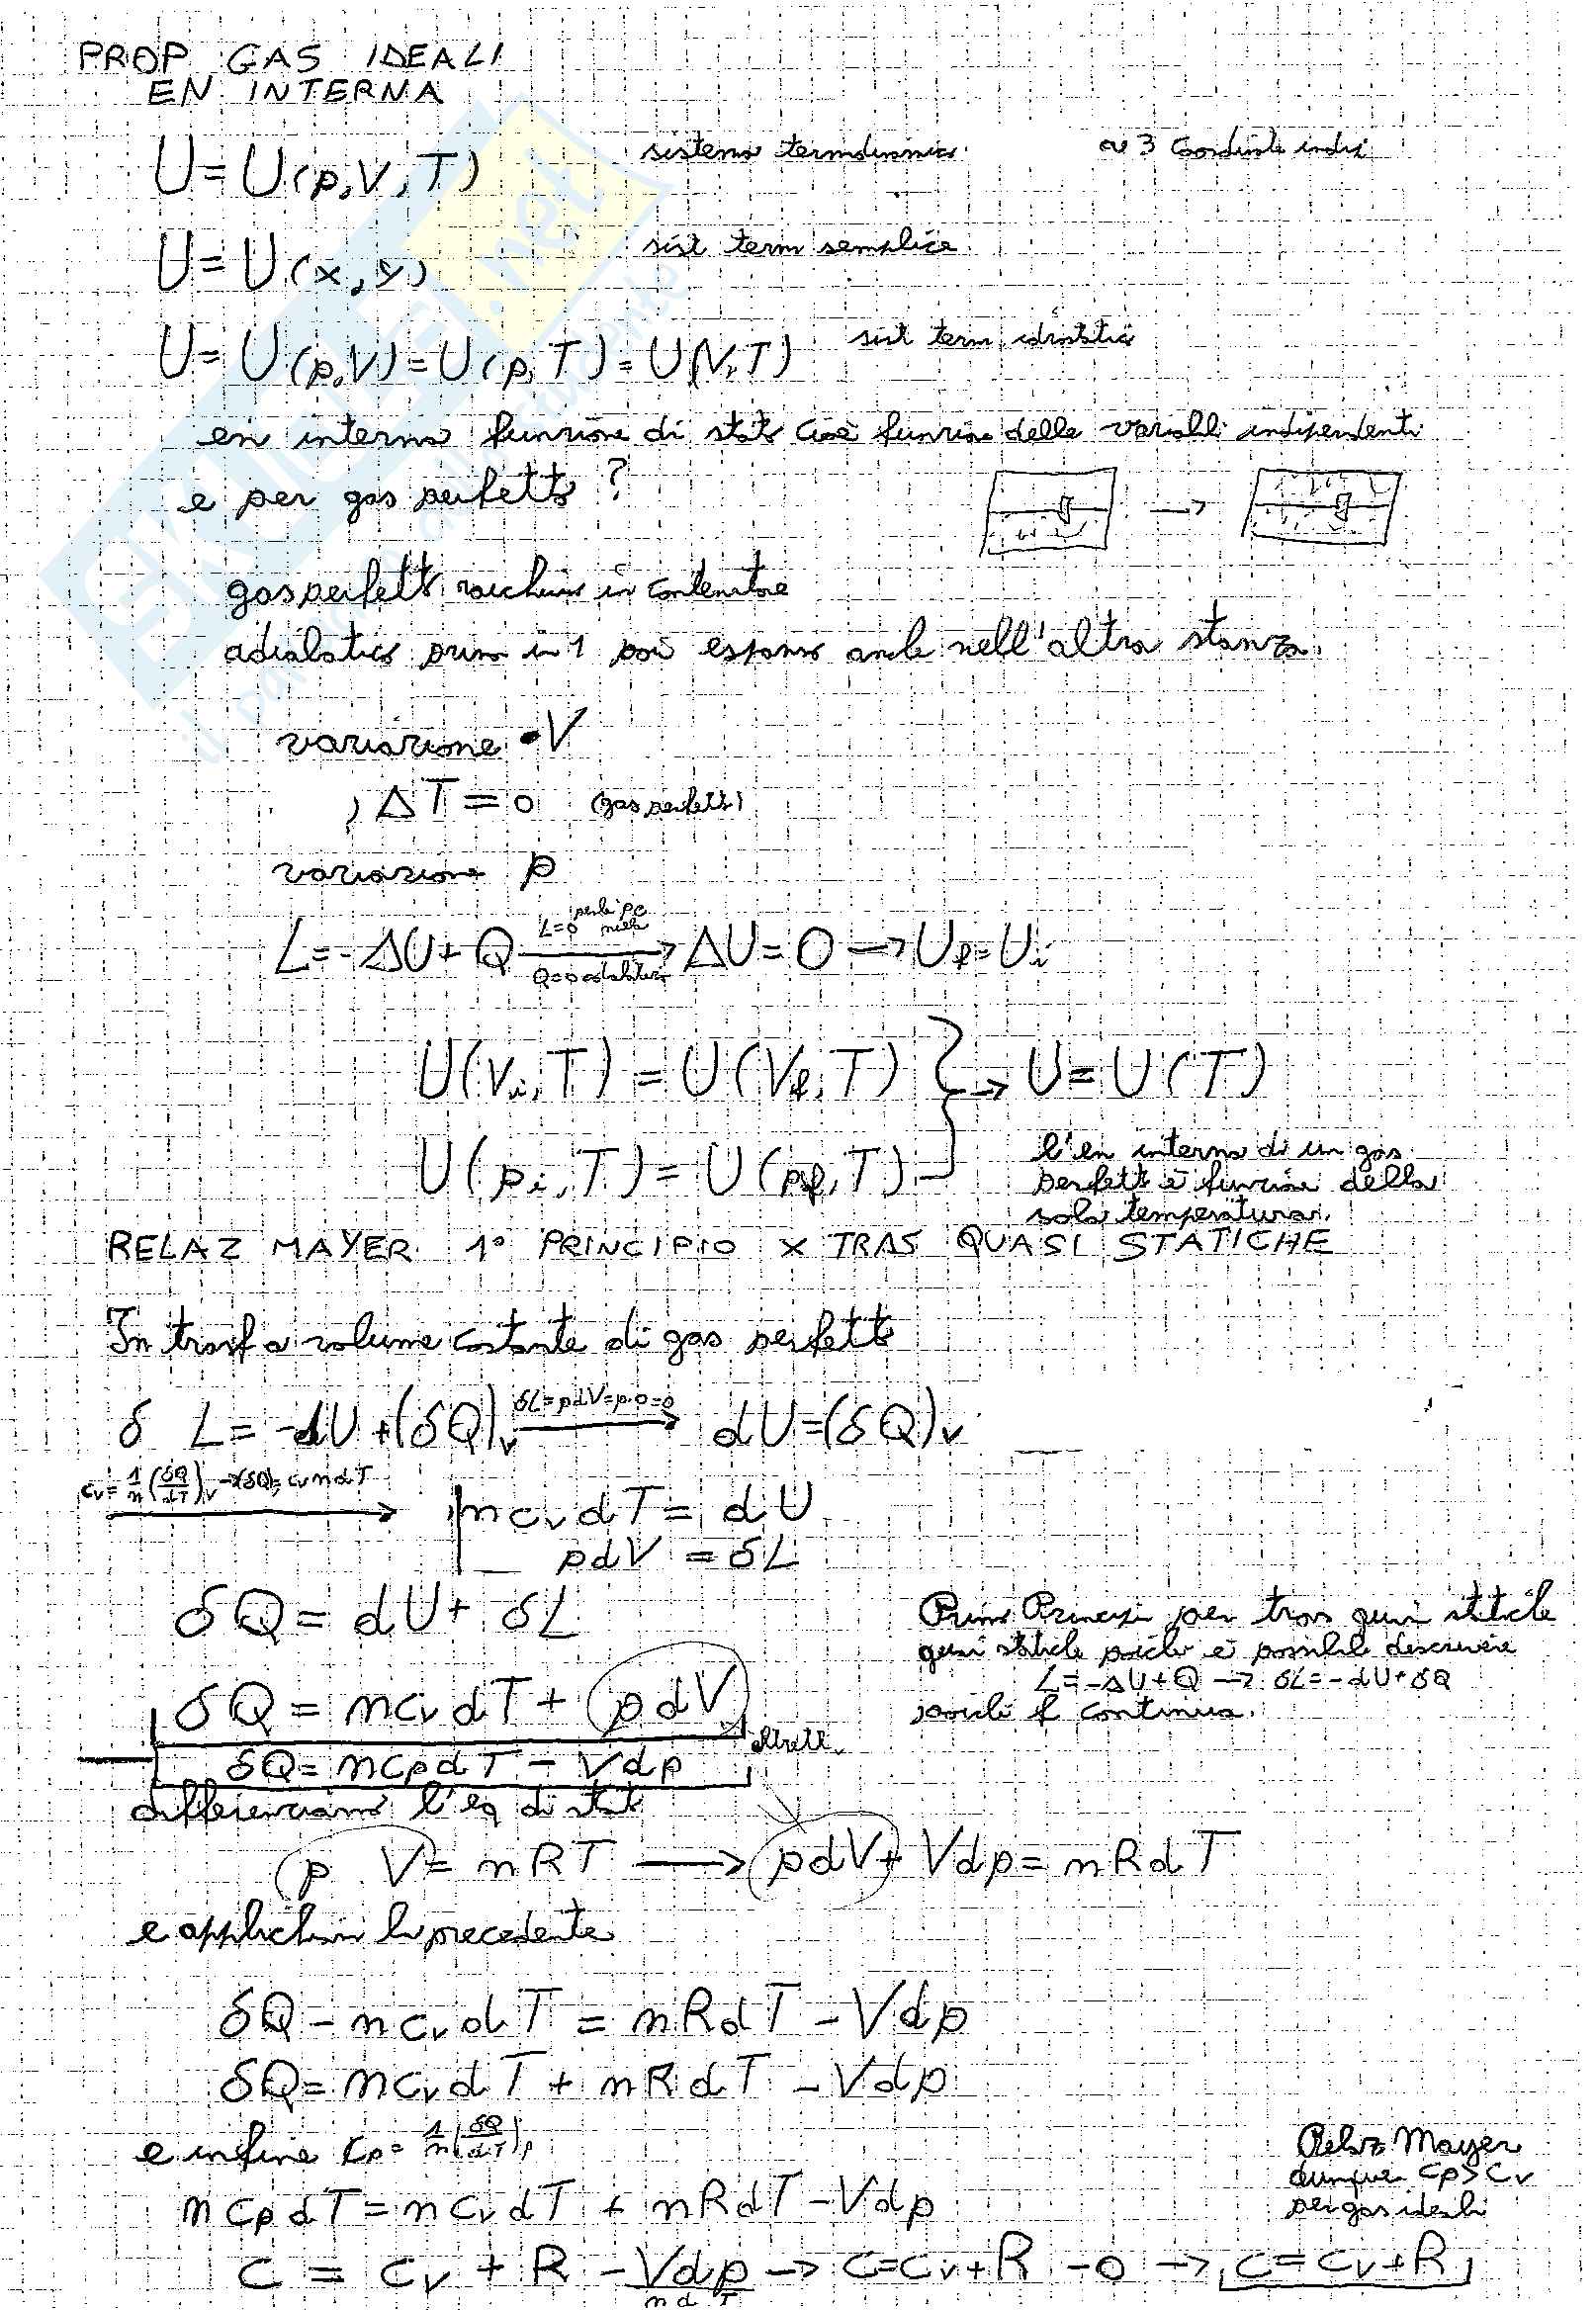 PROP GAS IDEALI
EN INTERNA
U=U(p,V,T) sistema termodinamico 3 coordinate
U=U(x,y) sist term semplice
U=U(p,V)=U(p,T)=U(V,T) sist term idrostatico
en interna funzione di stato cioè funzione delle variabili indipendenti
e per gas perfetto?
gas perfetto racchiuso in contenitore
adiabatico prima in 1 poi espanso anche nell'altra stanza.
variazione V
, ΔT=0 (gas perfetti)
variazione p
L=-ΔU+Q L=0 Q=0 adiabatico → ΔU=0 → Uf=Ui
U(Vi,T)=U(Vf,T) } → U=U(T)
U(pi,T)=U(pf,T)
l'en interna di un gas
perfetto è funzione della
sola temperatura.
RELAZ MAYER 1° PRINCIPIO X TRAS QUASI STATICHE
In trasf a volume costante di gas perfetto
δ L=-dU+(δQ)v δL=pdV=p·0=0 → dU=(δQ)v
cv=1/n(δQ/dT)v→(δQ)v=cv n dT → ncvdT=dU
pdV=δL
δQ=dU+δL
Primo Principio per tras quasi statiche
quasi statiche poiché è possibile descrivere
L=-ΔU+Q → δL=-dU+δQ
poiché f continua.
δQ=ncvdT+(pdV)
δQ=ncpdT-Vdp
differenziamo l'eq di stato
p V=nRT → pdV+Vdp=nRdT
e applichiamo la precedente
δQ-ncvdT=nRdT-Vdp
δQ=ncvdT+nRdT-Vdp
e infine cp=1/n(δQ/dT)p
ncpdT=ncvdT+nRdT-Vdp
Relaz Mayer
dunque cp>cv
per gas ideali
c=cv+R-Vdp/ndT → c=cv+R-0 → c=cv+R